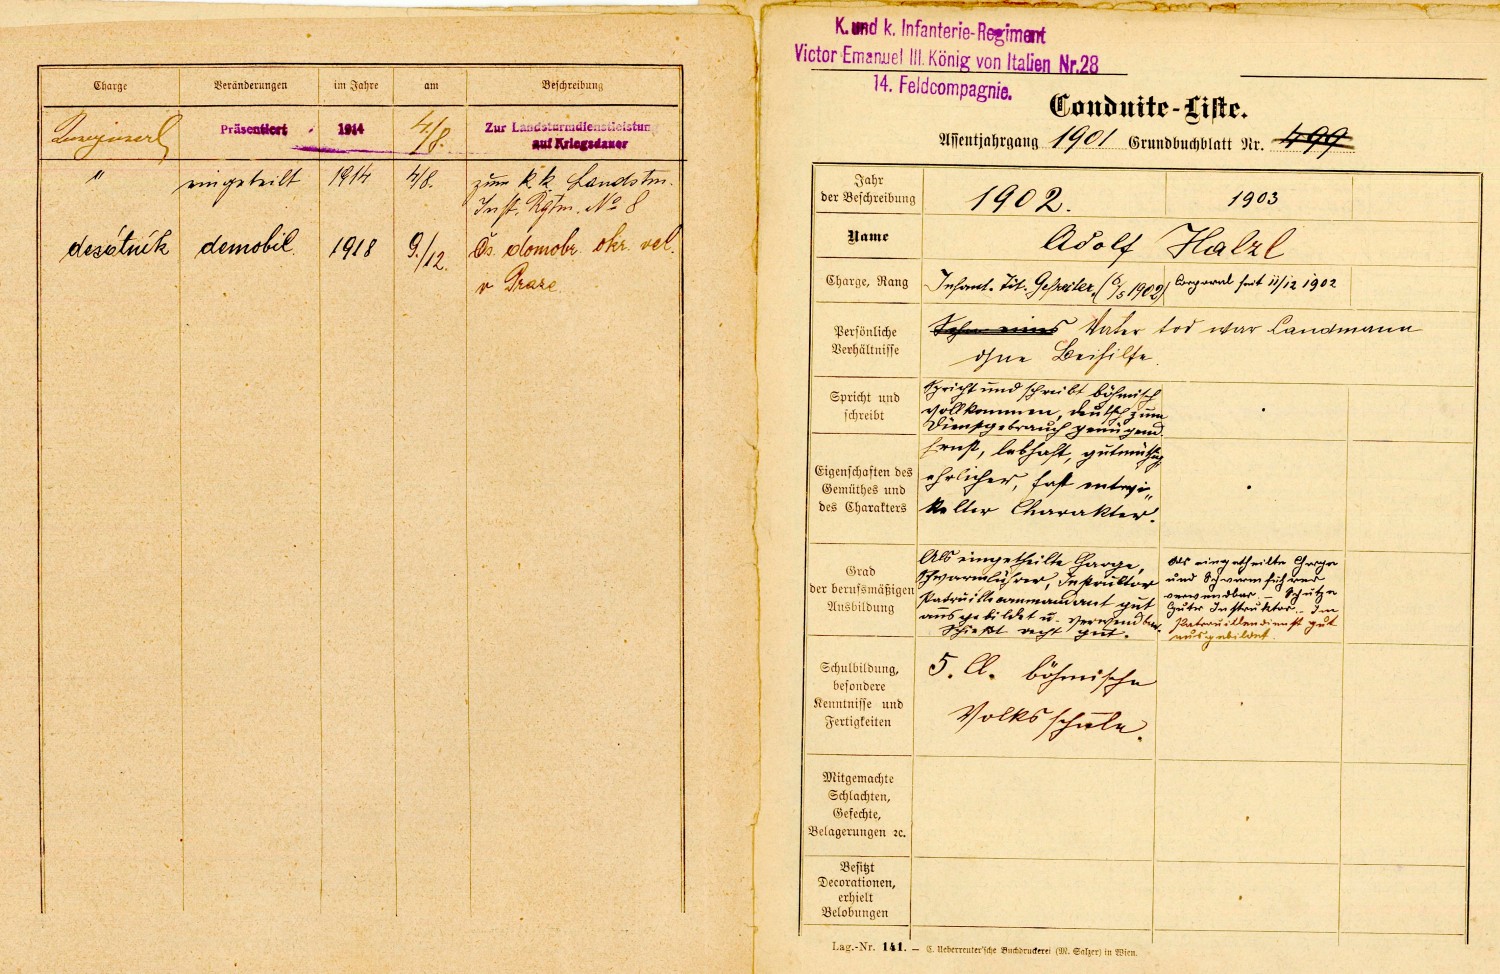 Charge Veränderungen im Jahre am Beschreibung
Präsentiert 1914 4/8. Zur Landsturmdienstleistung
auf Kriegsdauer
" eingeteilt 1914 4/8. zum k. k. Landstm.
Inft. Rgtm. No 8
desátník demobil. 1918 9./12. Čs. domobr. okr. vel.
v Praze.
K. und k. Infanterie-Regiment
Victor Emanuel III. König von Italien Nr. 28
14. Feldcompagnie.
Conduite-Liste.
Assentjahrgang 1901 Grundbuchblatt Nr. 499
Jahr
der Beschreibung
1902. 1903
Name Adolf Halzl
Charge, Rang Infant. Tit. Gefreiter, ( /5 1902) Corporal seit 11/12 1902
Persönliche
Verhältnisse
Sohn eines Vater tod war Landmann
ohne Beihilfe.
Spricht und
schreibt
Spricht und schreibt böhmisch
vollkommen, deutsch zum
Dienstgebrauch genügend.
Eigenschaften des
Gemüthes und
des Charakters
Ernst, lebhaft, gutmüthig,
ehrlicher, fast entwi„
kelter Charakter.
Grad
der berufsmäßigen
Ausbildung
Als eingetheilte Charge,
Schwarmführer, Instruktor
Patruillcommandant gut
ausgebildet u. verwendbar.
Schießt recht gut.
Als eingetheilte Charge
und Schwarmführer
verwendbar. – Schütze
Guter Instruktor. – Im
Patrouillendienst gut
ausgebildet.
Schulbildung,
besondere
Kenntnisse und
Fertigkeiten
5. Cl. böhmische
Volksschule.
Mitgemachte
Schlachten,
Gefechte,
Belagerungen ꝛc.
Besitzt
Decorationen,
erhielt
Belobungen
Lag.-Nr. 141. — C. Ueberreuter'sche Buchdruckerei (M. Salzer) in Wien.